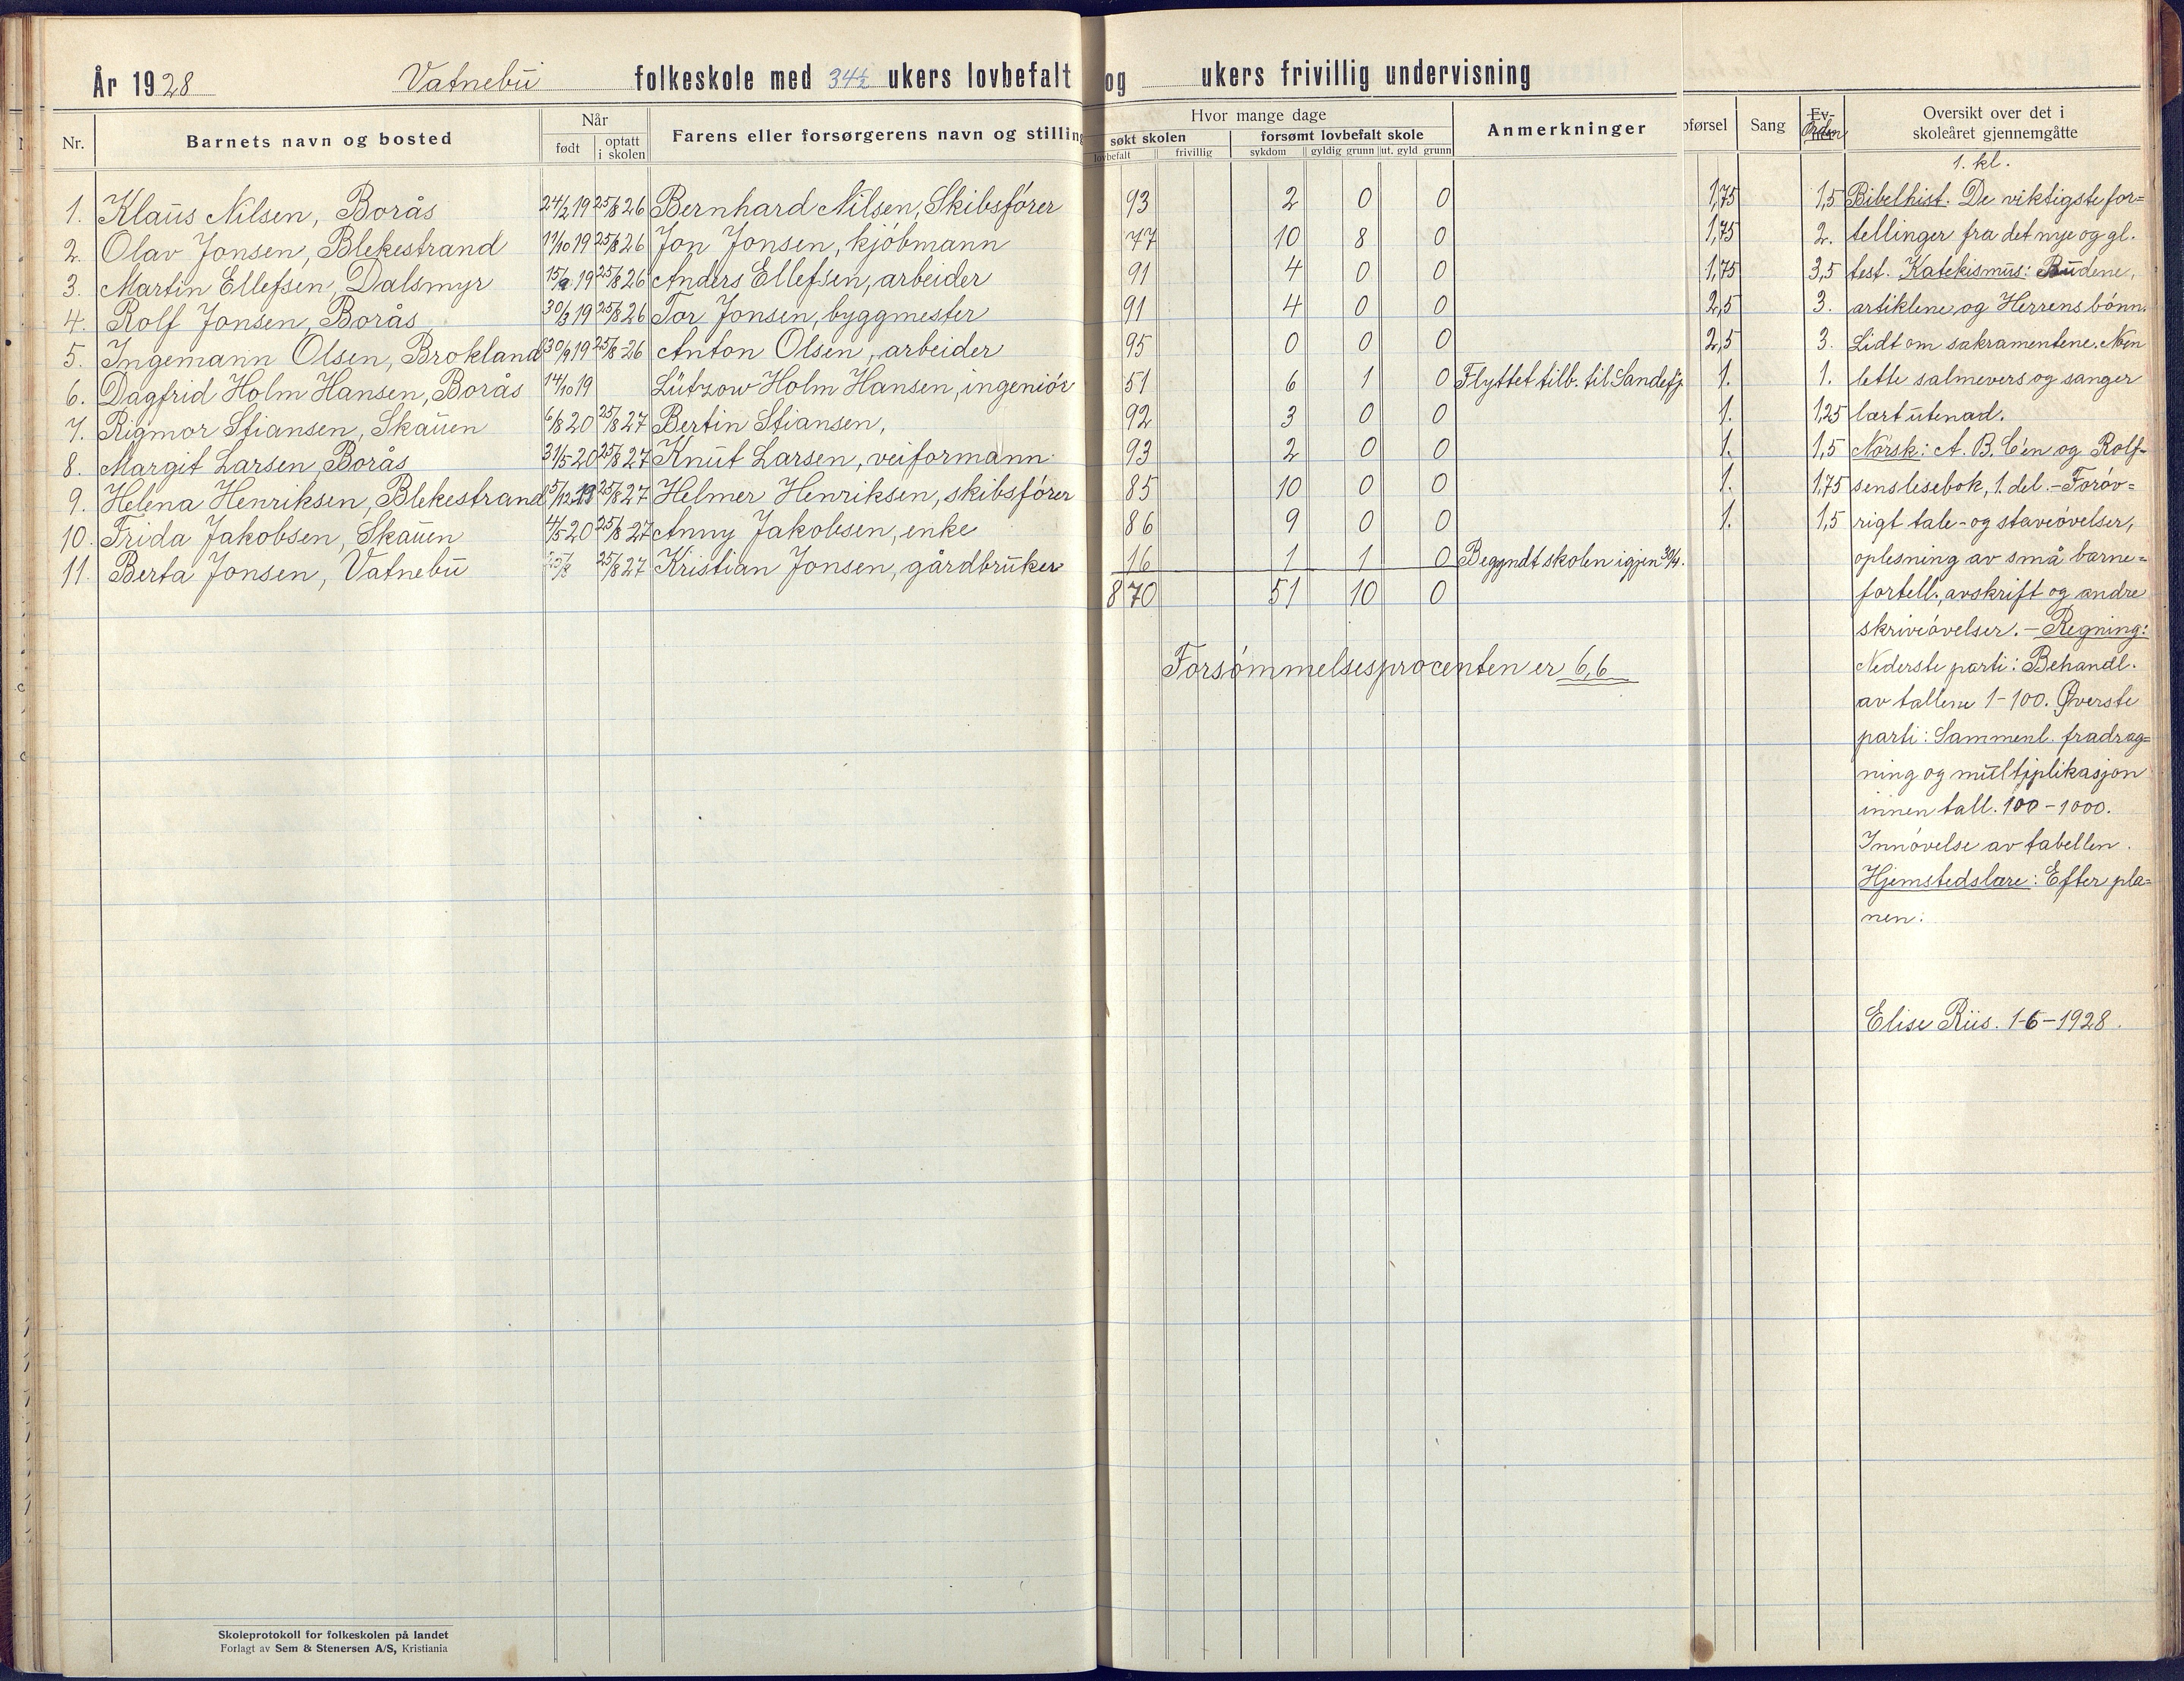 År 1928 Vatnebu folkeskole med 34½ ukers lovbefalt og ukers frivillig undervisning
Nr. Barnets navn og bosted Når født optatt i skolen Farens eller forsørgerens navn og stilling
Hvor mange dage
søkt skolen forsømt lovbefalt skole Anmerkninger
lovbefalt frivillig sykdom gyldig grunn ut. gyld grunn
førsel Sang Orden Oversikt over det i
skoleåret gjennemgåtte
1. Klaus Nilsen, Borås 24/2 19 25/8 26 Bernhard Nilsen, Skibsfører 93 2 0 0 1,75 1,5
2. Olav Jonsen, Blekestrand 11/10 19 25/8 26 Jon Jonsen, kjøbmann 77 10 8 0 1,75 2.
3. Martin Ellefsen, Dalsmyr 15/9 19 25/8 26 Anders Ellefsen, arbeider 91 4 0 0 1,75 3,5
4. Rolf Jonsen, Borås 30/3 19 25/8 26 Tor Jonsen, byggmester 91 4 0 0 2,5 3.
5. Ingemann Olsen, Brokland 30/9 19 25/8-26 Anton Olsen, arbeider 95 0 0 0 2,5 3.
6. Dagfrid Holm Hansen, Borås 14/10 19 Lützow Holm Hansen, ingeniør 51 6 1 0 Flyttet tilb. til Sandefj. 1. 1.
7. Rigmor Stiansen, Skauen 6/8 20 25/8 27 Bertin Stiansen, 92 3 0 0 1. 1,25
8. Margit Larsen, Borås 31/5-20 25/8 27 Knut Larsen, veiformann 93 2 0 0 1. 1,5
9. Helena Henriksen, Blekestrand 25/8 27 Helmer Henriksen, skibsfører 85 10 0 0 1. 1,75
10. Frida Jakobsen, Skauen 4/5-20 25/8-27 Anny Jakobsen, enke 86 9 0 0 1. 1,5
11. Berta Jonsen, Vatnebu 25/8 27 Kristian Jonsen, gårdbruker 16 1 1 0 Begyndt skolen igjen 30/4.
870 51 10 0
Forsømmelsesprocenten er 6,6
1. kl.
Bibelhist. De viktigste for=
tellinger fra det nye og gl.
test. Katekismus: Budene,
artiklene og Herrens bønn.
Lidt om sakramentene. Noen
lette salmevers og sanger
lært utenad.
Norsk: A.B.C'en og Rolf-
sens lesebok, 1. del. - Forøv=
rigt tale- og staveøvelser,
oplesning av små barne=
fortell., avskrift og andre
skriveøvelser. - Regning:
Nederste parti: Behandl.
av tallene 1-100. Øverste
parti: Sammenl. fradrag=
ning og multiplikasjon
innen tall. 100-1000.
Innøvelse av tabellen.
Hjemstedslære: Efter pla=
nen.
Elise Riis. 1-6-1928.
Skoleprotokoll for folkeskolen på landet
Forlagt av Sem & Stenersen A/S, Kristiania